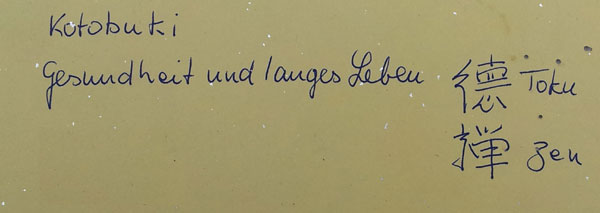 Kotobuki
Gesundheit und langes Leben
德 Toku
禅 Zen